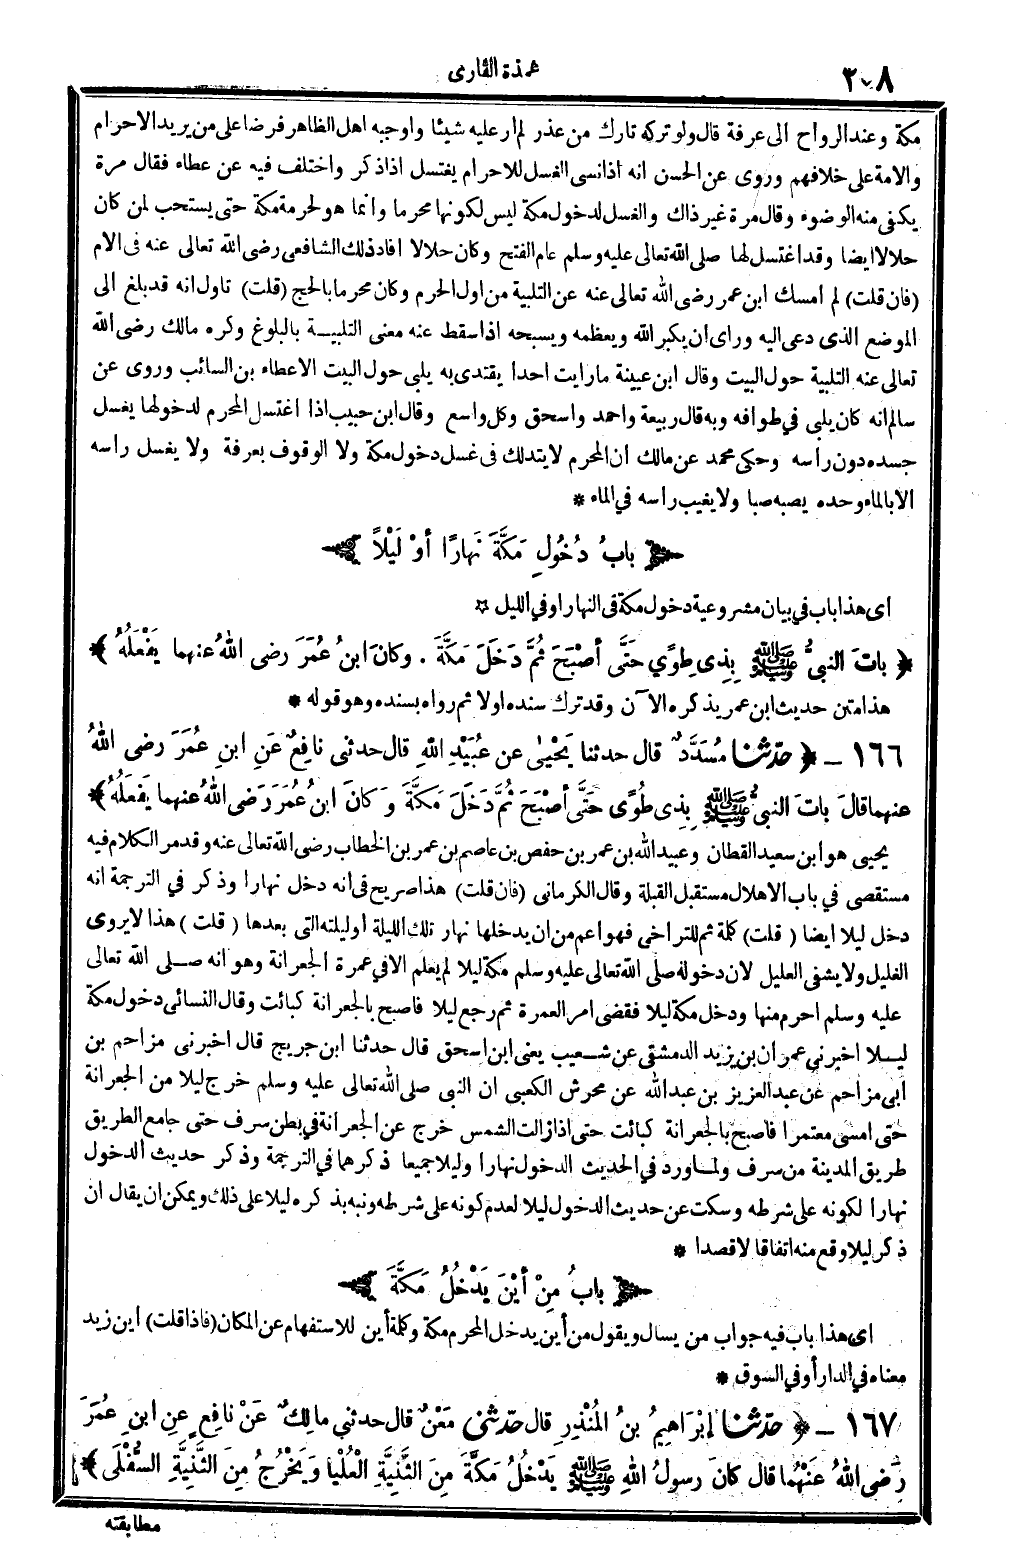 ٢٠٨
عمدة القارى
مكة وعند الرواح الى عرفة قال ولو تركه تارك من عذر لم ار عليه شيئا واوجبه اهل الظاهر فرضا على من يريد الاحرام
والامة على خلافهم وروى عن الحسن انه اذا نسى الغسل للاحرام يغتسل اذا ذكر واختلف فيه عن عطاء فقال مرة
يكفى منه الوضوء وقال مرة غير ذاك والغسل لدخول مكة ليس لكونها محرما وانما هو لحرمة مكة حتى يستحب لمن كان
حلالا ايضا وقد اغتسل لها صلى الله تعالى عليه وسلم عام الفتح وكان حلالا افاد ذلك الشافعى رضى الله تعالى عنه فى الام
(فان قلت) لم امسك ابن عمر رضى الله تعالى عنه عن التلبية من اول الحرم وكان محرما بالحج (قلت) تاول انه قد بلغ الى
الموضع الذى دعى اليه وراى ان يكبر الله ويعظمه ويسبحه اذا سقط عنه معنى التلبيـة بالبلوغ وكره مالك رضى الله
تعالى عنه التلبية حول البيت وقال ابن عيينة ما رايت احدا يقتدى به يلبى حول البيت الا عطاء بن السائب وروى عن
سالم انه كان يلبى في طوافه وبه قال ربيعة واحمد واسحق وكل واسع وقال ابن حبيب اذا اغتسل المحرم لدخولها يغسل
جسده دون رأسه وحكى محمد عن مالك ان المحرم لا يتدلك فى غسل دخول مكة ولا الوقوف بعرفة ولا يغسل راسه
الا بالماء وحده يصبه صبا ولا يغيب راسه في الماء *
﴿ بابُ دُخُولِ مَكَّةَ نَهارًا أوْ لَيْلاً ﴾
اى هذا باب في بيان مشروعية دخول مكة في النهار او في الليل *
﴿ باتَ النبيُّ ﷺ بِذِى طِوًي حَتَّى أصْبَحَ ثُمَّ دَخَلَ مَكَّةَ . وكانَ ابنُ عُمَرَ رضى اللهُ عنهما يَفْعَلُهُ ﴾
هذا متن حديث ابن عمر يذكره الآن وقد ترك سنده اولا ثم رواه بسنده وهو قوله *
١٦٦ ـ ﴿ حدّثنا مُسَدَّدٌ قال حدثنا يَحْيىٰ عن عُبَيْدِ اللهِ قال حدثنى نافِعٌ عَنِ ابنِ عُمَرَ رضى اللهُ
عنهما قالَ باتَ النبيُّ ﷺ بِذِى طُوًى حَتَّى أصْبَحَ ثُمَّ دَخَلَ مَكَّةَ وَكانَ ابنُ عُمَرَ رَضى اللهُ عنهما يَفعَلُهُ ﴾
يحيى هو ابن سعيد القطان وعبيد الله بن عمر بن حفص بن عاصم بن عمر بن الخطاب رضى الله تعالى عنه وقد مر الكلام فيه
مستقصى في باب الاهلال مستقبل القبلة وقال الكرمانى (فان قلت) هذا صريح فى انه دخل نهارا وذكر في الترجمة انه
دخل ليلا ايضا (قلت) كلمة ثم للتراخى فهو اعم من ان يدخلها نهار تلك الليلة او ليلته التى بعدها (قلت) هذا لا يروى
الغليل ولا يشفى العليل لان دخوله صلى الله تعالى عليه وسلم مكة ليلا لم يعلم الا في عمرة الجعرانة وهو انه صـلى الله تعالى
عليه وسلم احرم منها ودخل مكة ليلا فقضى امر العمرة ثم رجع ليلا فاصبح بالجعرانة كبائت وقال النسائى دخول مكة
ليـلا اخبرنى عمران بن يزيد الدمشقى عن شـعيب يعنى ابن اسحق قال حدثنا ابن جريج قال اخبرنى مزاحم بن
ابى مزاحم عن عبد العزيز بن عبد الله عن محرش الكعبى ان النبى صلى الله تعالى عليه وسلم خرج ليلا من الجعرانة
حتى امسى معتمرا فاصبح بالجعرانة كبائت حتى اذا زالت الشمس خرج عن الجعرانة في بطن سرف حتى جامع الطريق
طريق المدينة من سرف ولمـا ورد في الحديث الدخول نهارا وليلا جميعا ذكرهما في الترجمة وذكر حديث الدخول
نهارا لكونه على شرطه وسكت عن حديث الدخول ليلا لعدم كونه على شرطه ونبه بذكره ليلا على ذلك ويمكن ان يقال ان
ذكر ليلا وقع منه اتفاقا لا قصدا *
﴿ بابُ مِنْ أيْنَ يَدْخُلُ مَكَّةَ ﴾
اى هذا باب فيه جواب من يسال ويقول من أين يدخل المحرم مكة وكلمة أين للاستفهام عن المكان (فاذا قلت) اين زيد
معناه في الدار أو في السوق *
١٦٧ ـ ﴿ حدّثنا إبْرَاهِيمُ بنُ المُنْذِرِ قال حدّثنى مَعْنٌ قال حدثني مالِكٌ عَنْ نافِعٍ عنِ ابنِ عُمَرَ
رَضى اللهُ عَنْهُما قال كانَ رسولُ اللهِ ﷺ يَدْخُلُ مَكَّةَ مِنَ الثَّنِيَّةِ العُلْيا وَيَخْرُجُ مِنَ الثَّنِيَّةِ السُّفْلَى ﴾
مطابقته